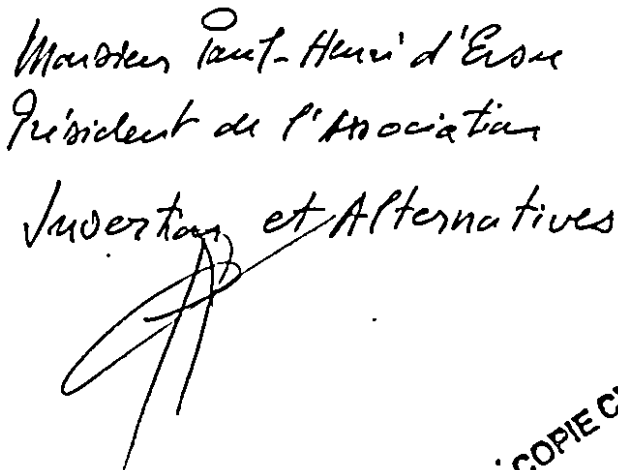 Monsieur Paul-Henri d'Ersu
Président de l'Association
Insertion et Alternatives
COPIE C